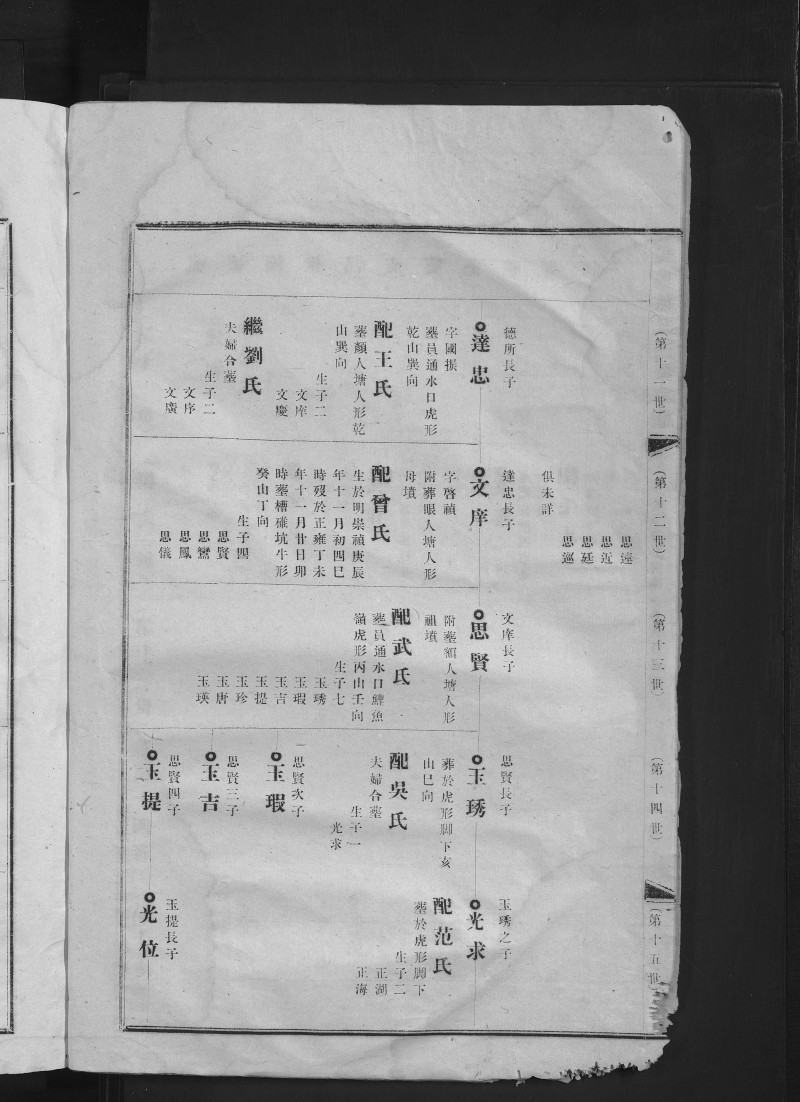 (第十一世)
德所長子
達忠
字國振
葬員通水口虎形
乾山巽向
配王氏
葬顏人塘人形乾
山巽向
生子二
文庠
文慶
繼劉氏
夫婦合葬
生子二
文序
文廣
(第十二世)
思遠
思近
思廷
思巡
俱未詳
達忠長子
文庠
字啓禎
附葬眼人塘人形
母墳
配曾氏
生於明崇禎庚辰
年十一月初四巳
時歿於正雍丁未
年十一月廿日卯
時葬槽碓坑牛形
癸山丁向
生子四
思賢
思鸞
思鳳
思儀
(第十三世)
文庠長子
思賢
附葬額人塘人形
祖墳
配武氏
葬員通水口鯉魚
嶺虎形丙山壬向
生子七
玉琇
玉瑕
玉吉
玉提
玉珍
玉唐
玉瑛
(第十四世)
思賢長子
玉琇
葬於虎形脚下亥
山巳向
配吳氏
夫婦合葬
生子一
光求
思賢次子
玉瑕
思賢三子
玉吉
思賢四子
玉提
(第十五世)
玉琇之子
光求
配范氏
葬於虎形脚下
生子二
正湖
正海
玉提長子
光位